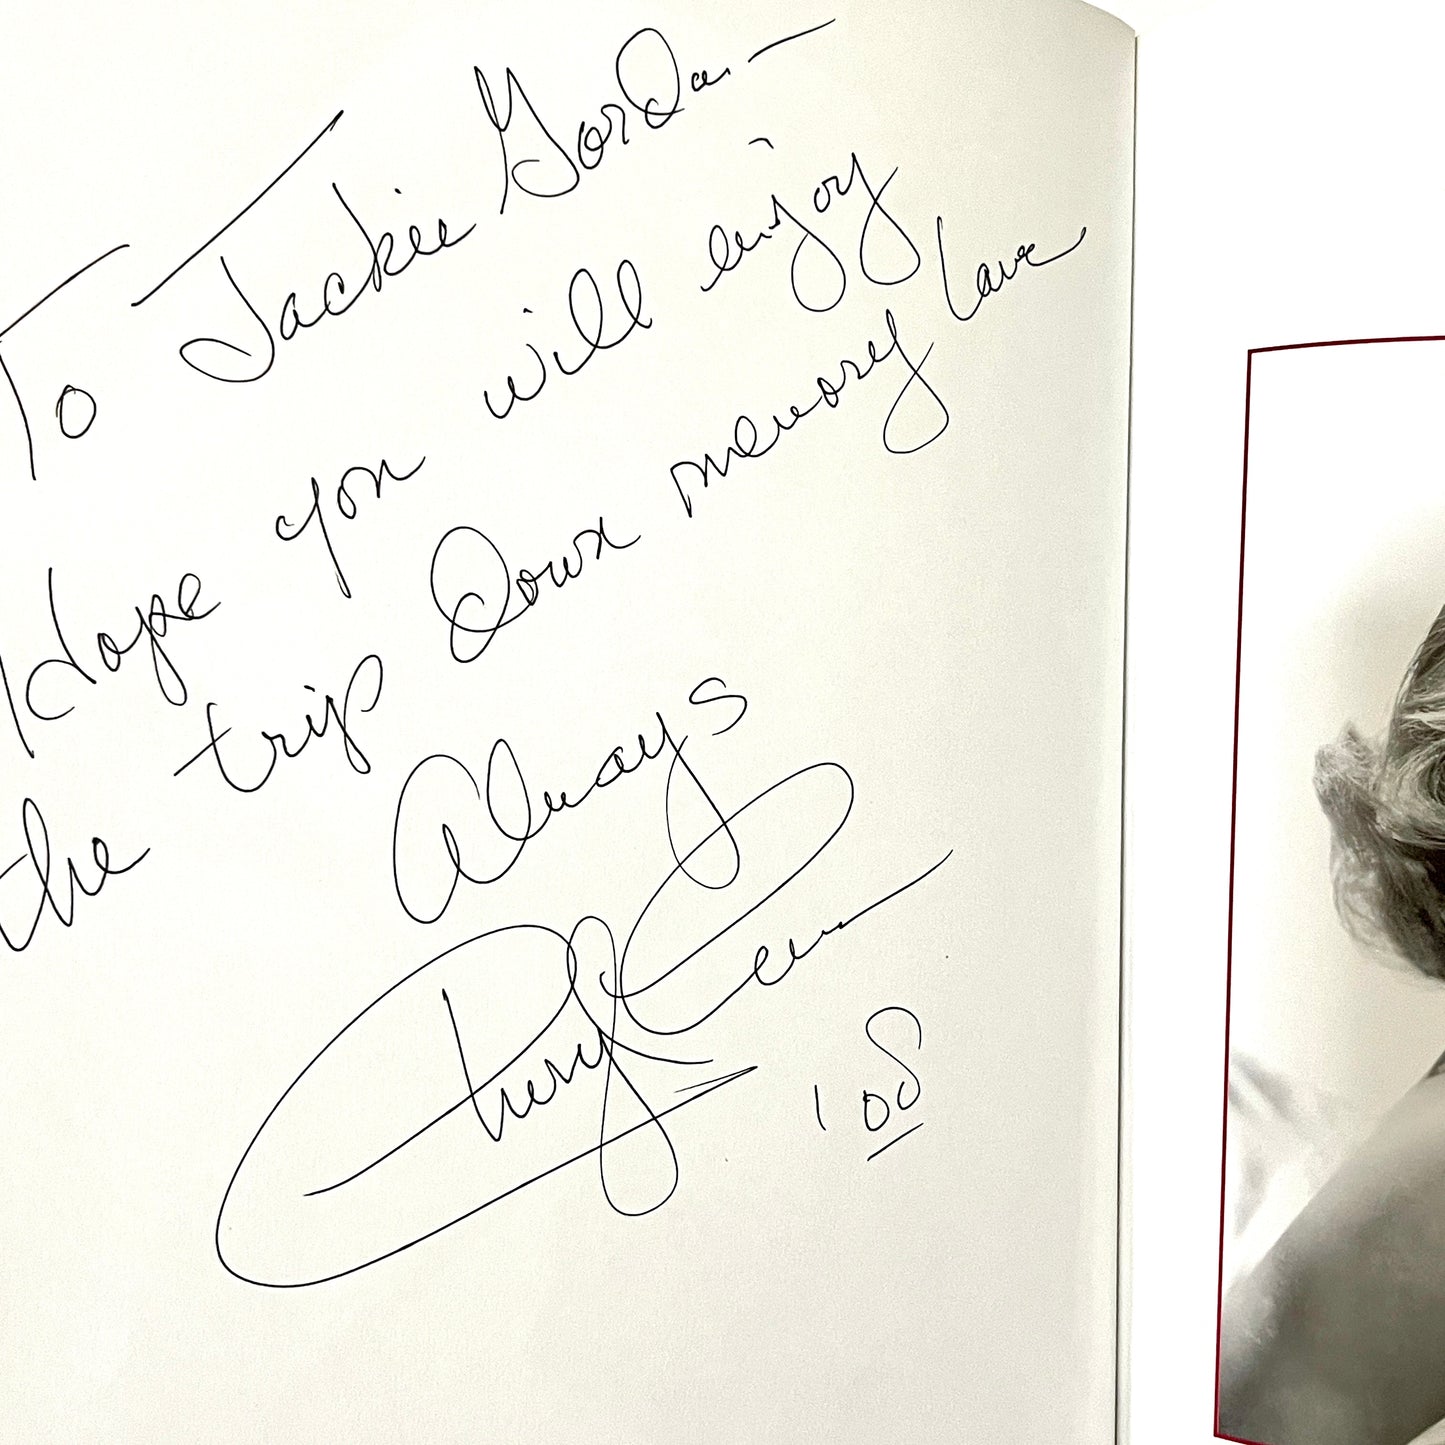 To Jackie Gordon —
Hope you will enjoy
the trip down memory lane
Always
Cheryl
'08